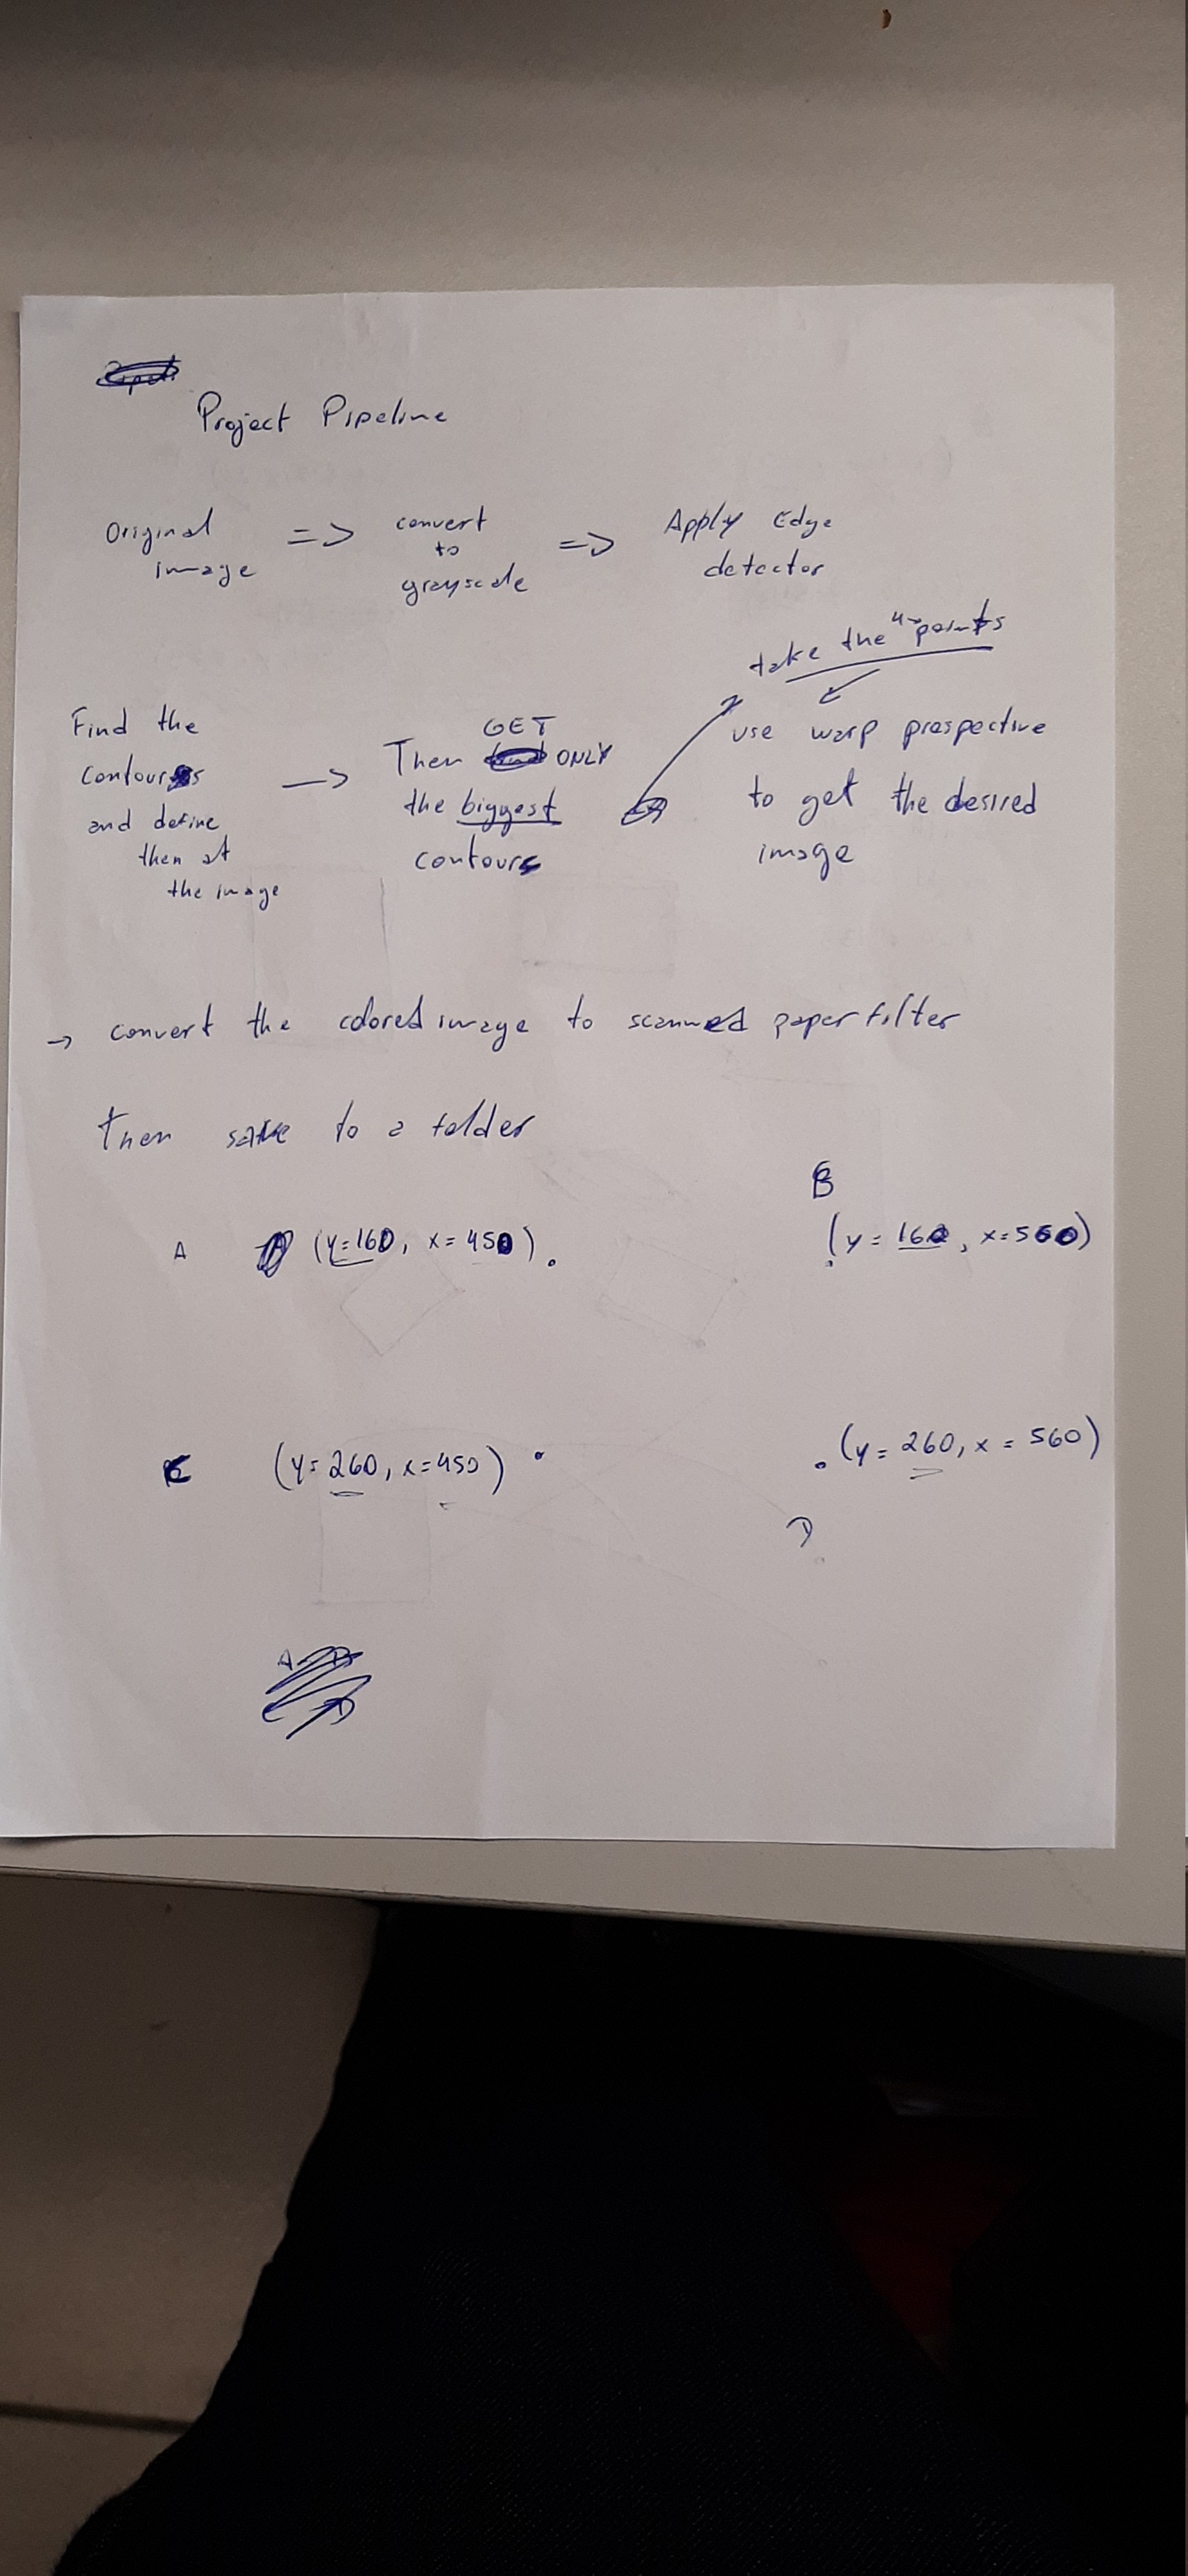 Project Pipeline
Original image => convert to grayscale => Apply Edge detector
take the 4 points
Find the contours and define then at the image -> Then GET ONLY the biggest contours
use warp prospective to get the desired image
-> convert the colored image to scanned paper filter
then save to a folder
B
A (y=160, x=450) (y=160, x=560)
C (y=260, x=450) (y=260, x=560)
D